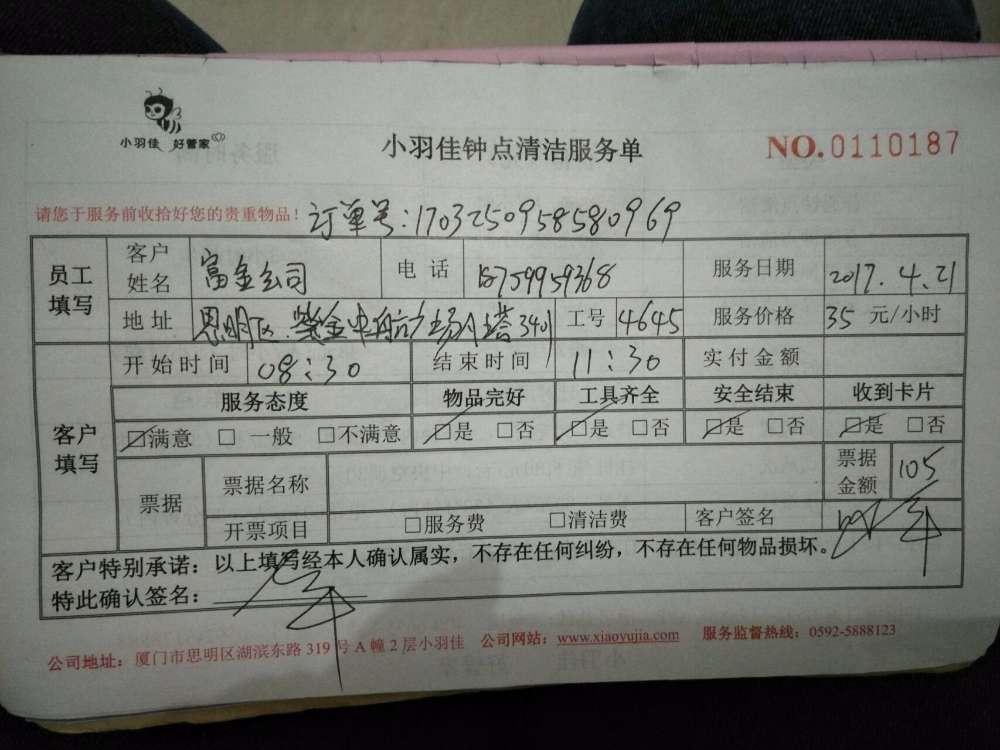 小羽佳 好管家
小羽佳钟点清洁服务单
NO.0110187
请您于服务前收拾好您的贵重物品！
订单号:17032509585580969
员工填写 客户姓名 富金公司 电话 15759959368 服务日期 2017.4.21
地址 思明区紫金中航广场A塔3401 工号 4645 服务价格 35 元/小时
客户填写 开始时间 08:30 结束时间 11:30 实付金额
服务态度 物品完好 工具齐全 安全结束 收到卡片
☑满意 □一般 □不满意 ☑是 □否 ☑是 □否 ☑是 □否 ☑是 □否
票据 票据名称 票据金额 105
开票项目 □服务费 □清洁费 客户签名
客户特别承诺：以上填写经本人确认属实，不存在任何纠纷，不存在任何物品损坏。
特此确认签名：
公司地址：厦门市思明区湖滨东路319号A幢2层小羽佳 公司网站：www.xiaoyujia.com 服务监督热线：0592-5888123